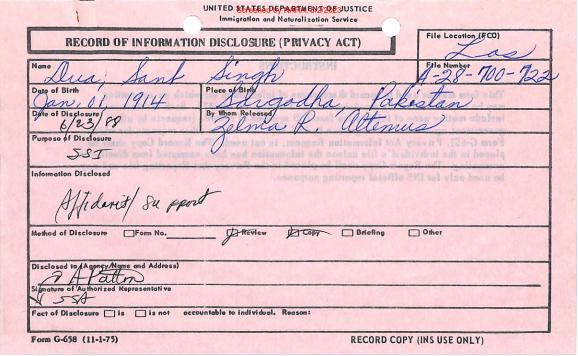 UNITED STATES DEPARTMENT OF JUSTICE
Immigration and Naturalization Service
RECORD OF INFORMATION DISCLOSURE (PRIVACY ACT)
File Location (FCO)
Los
Name
Dua, Sant Singh
File Number
A-28-700-722
Date of Birth
Jan, 01, 1914
Place of Birth
Sargodha, Pakistan
Date of Disclosure
6/23/88
By Whom Released
Zelma R. Altemus
Purpose of Disclosure
SSI
Information Disclosed
Affidavit/Support
Method of Disclosure Form No. Review Copy Briefing Other
Disclosed to (Agency/Name and Address)
A Patton
Signature of Authorized Representative
SSA
Fact of Disclosure is is not accountable to individual. Reason:
Form G-658 (11-1-75)
RECORD COPY (INS USE ONLY)